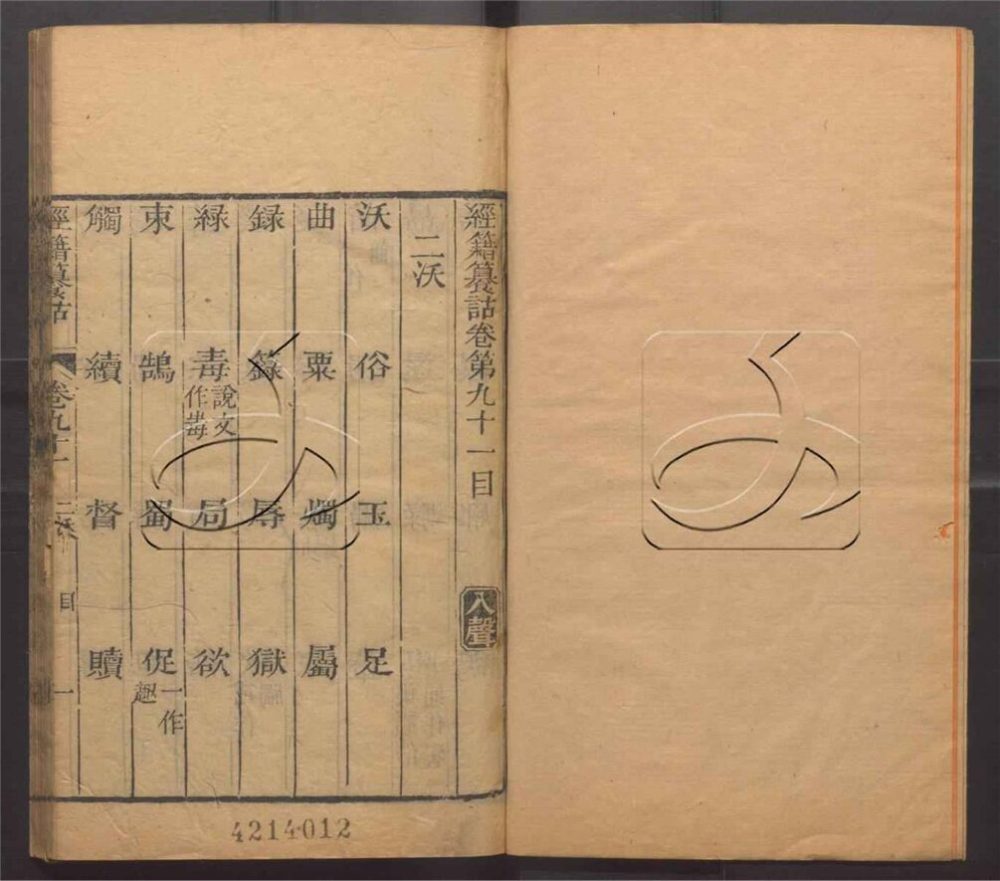 經籍籑詁卷第九十一目 入聲
二沃
沃 俗 玉 足
曲 粟 燭 屬
録 籙 辱 獄
緑 毒說文作𡴆 局 欲
束 鵠 蜀 促一作趣
觸 續 督 贖
經籍籑詁 卷九十一 二沃 目 一
4214012